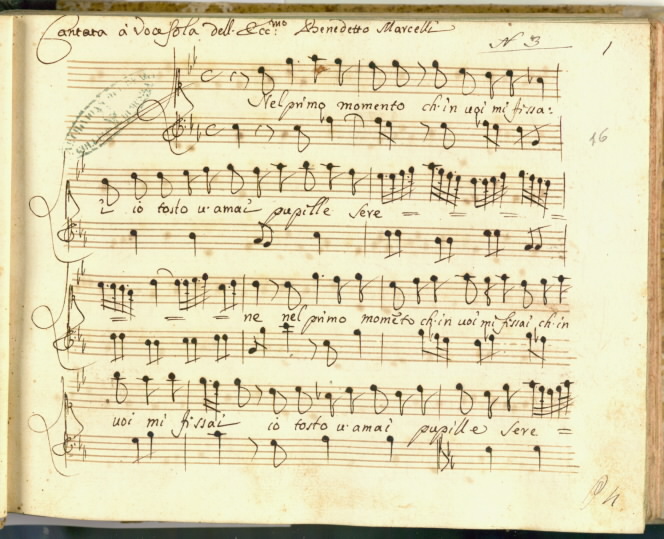 Cantata à Voce sola dell. Ecc:mo Benedetto Marcelli
N 3
1
Nel primo momento ch. in voi mi fissa:
16
i io tosto v. amai pupille sere = = = =
= = = ne nel primo momēto ch. in voi mi fissai ch. in
voi mi fissai io tosto v. amai pupille sere =